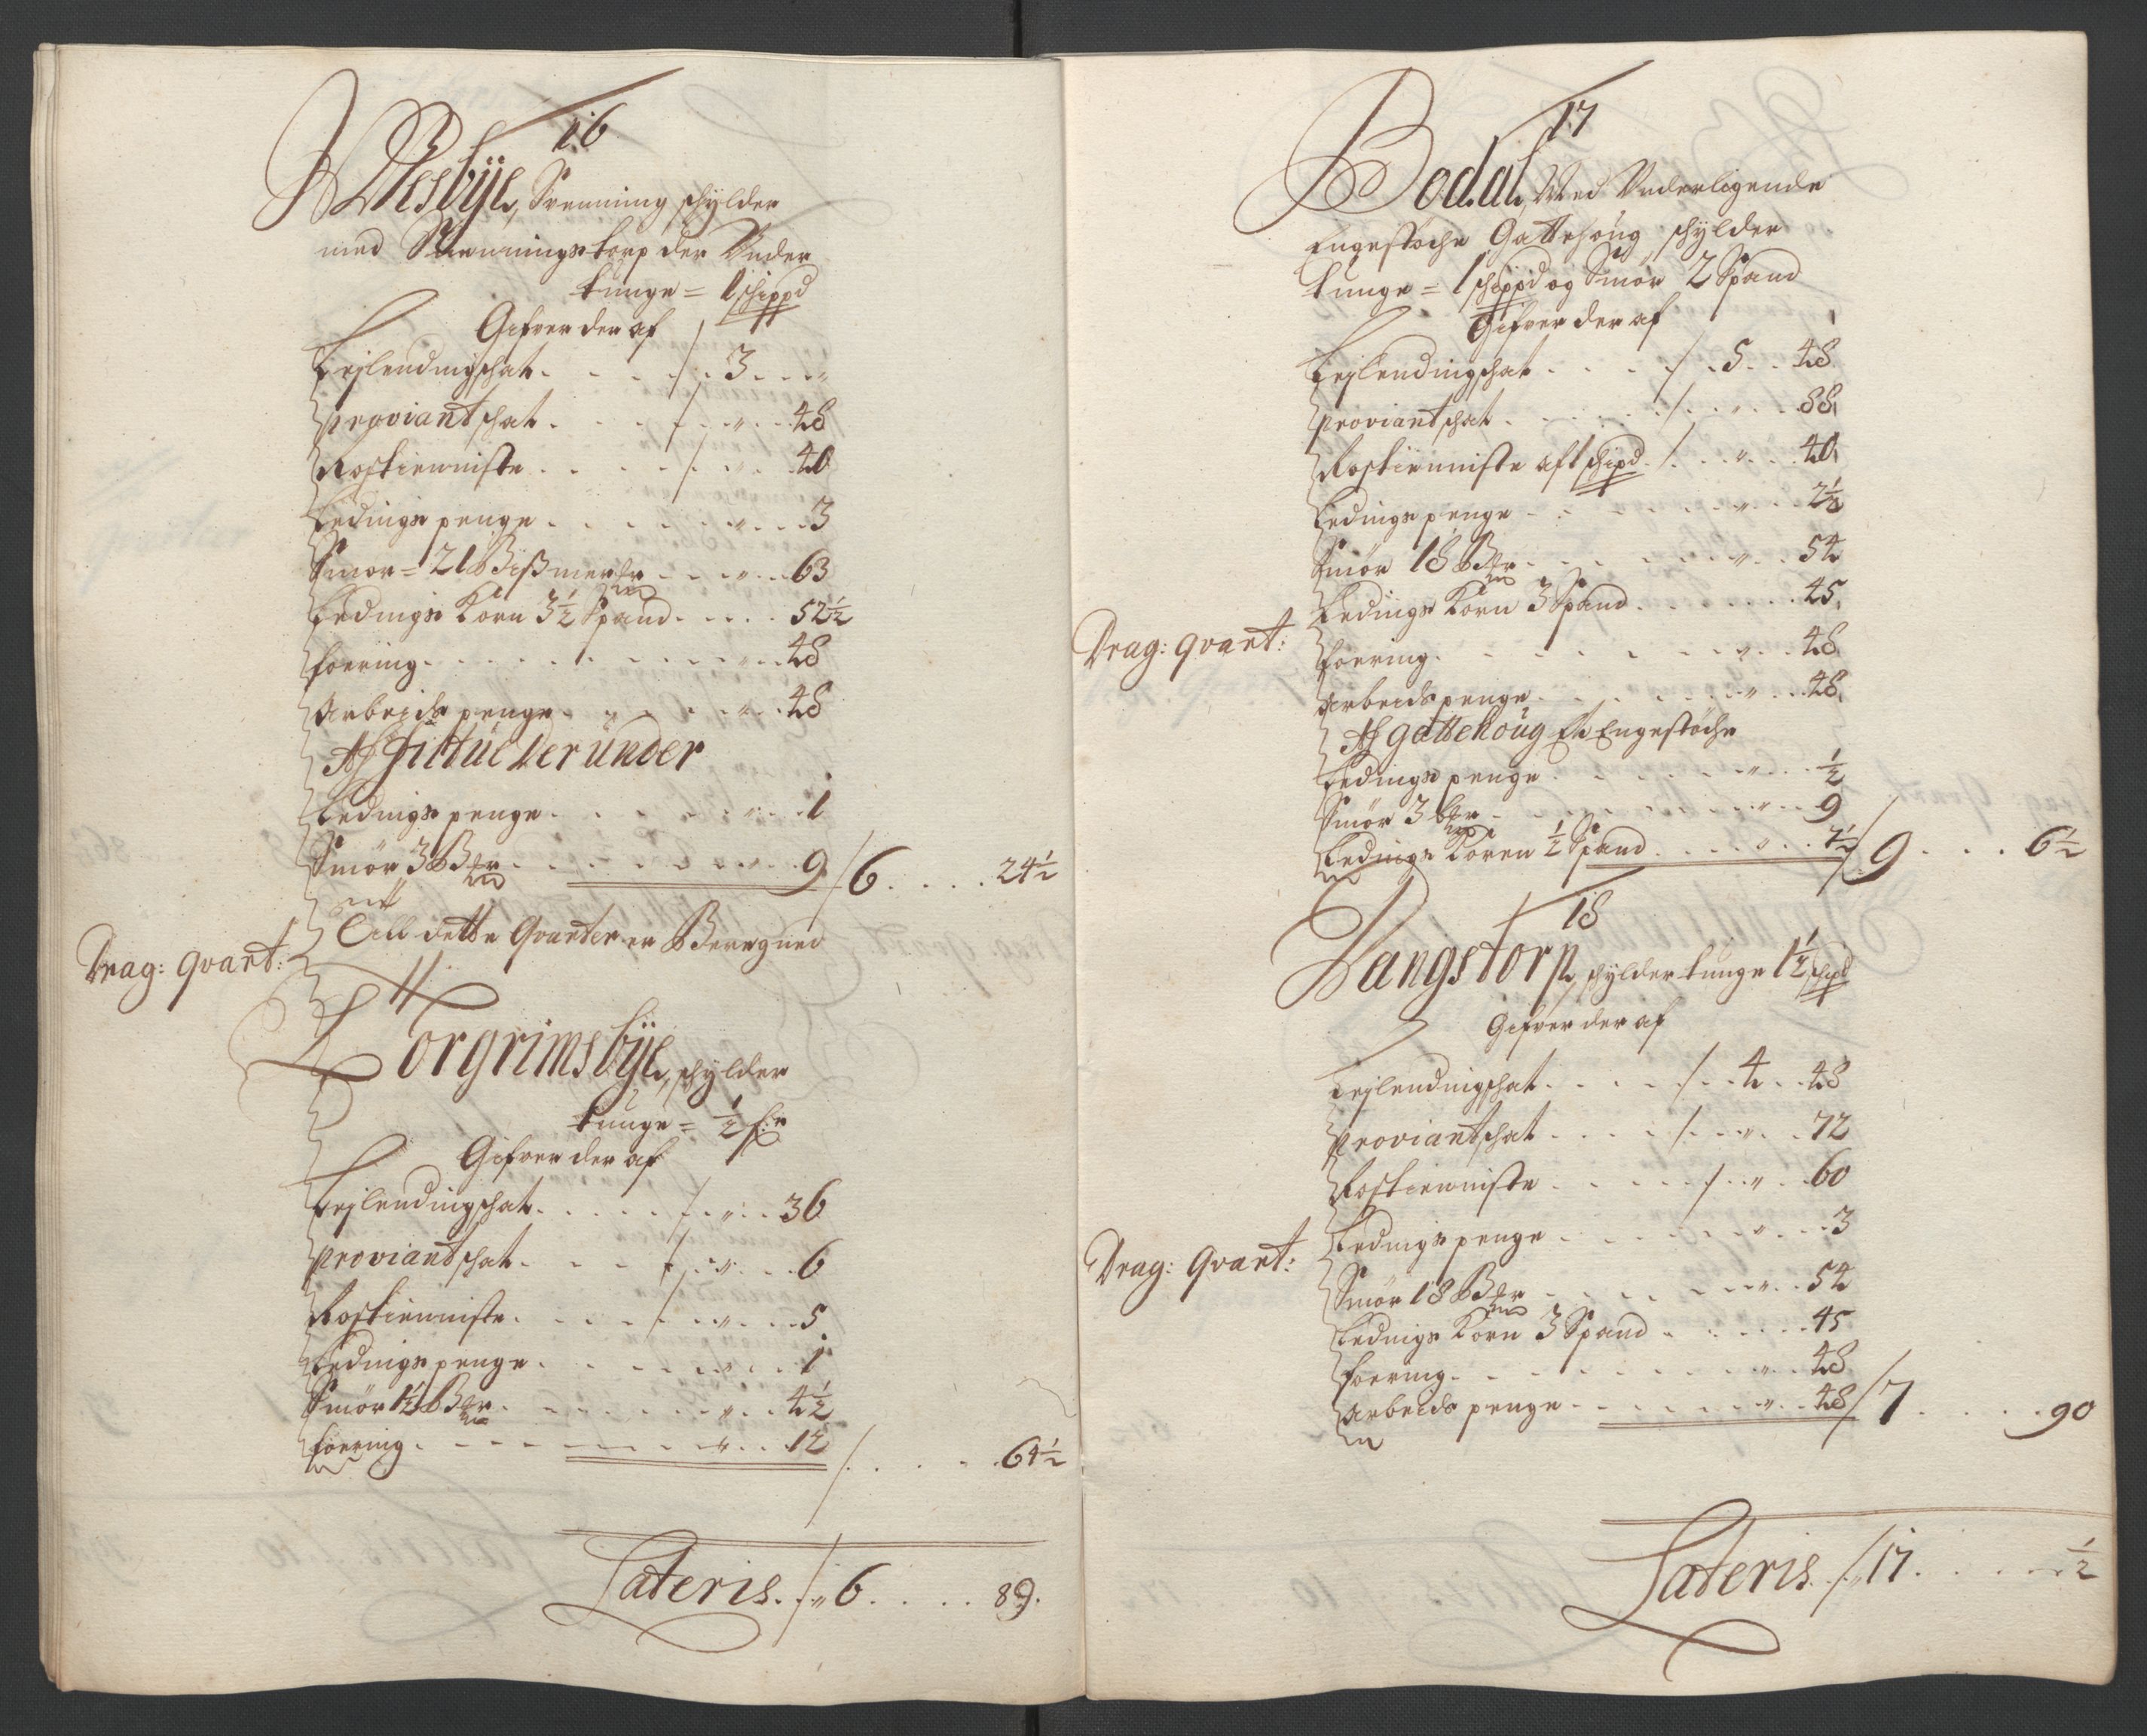 16
Wesbÿe, Svenning schÿlder
med Svenningstorp der Under
tunge = 1 schippd
Gifver der af
Lejlendingschat . . . . / . 3 . . . „
proviantschat . . . . / . „ . . 48
Rostienniste . . . . / . „ . . 40
Ledings penge . . . . „ . . 3
Smør = 21 Bißmerpr . . „ . . 63
Ledings Korn 3½ Spand . . . . 52½
foering . . . . „ . . 48
Arbeids penge . . . . „ . . 48
Af der ünder
Ledings penge . . . . „ . . 1
Smør 3 Bpr . . . . „ . . 9 / 6 . . . . 24½
Till dette Qvarter er Beregned
Drag: qvart:
Torgrimsbÿe, schÿlder
tunge = ½ 
Gifver der af
Lejlendingschat . . . . / . „ . . 36
proviantschat . . . . / . „ . . 6
Rostienniste . . . . / . „ . . 5
Ledings penge . . . . „ . . 1
Smør 1½ Bpr . . . . „ . . 4½
foering . . . . „ . . 12 / . . . . 64½
Lateris . / „ 6 . . . . 89.
17
Bodal, Med Underligende
Engestøche Gattehoug schÿlder
tunge = 1 schippd og Smør 2 Spand
Gifver der af
Lejlendingschat . . . . / . 5 . . 48
proviantschat . . . . / . „ . . 88
Rostienniste af 1 schipd . / . „ . . 40
Ledings penge . . . . „ . . 2½
Smør 18 Bpr . . . . „ . . 54
Ledings Korn 3 Spand . . . . 45
Drag: qvart:
foering . . . . „ . . 48
Arbeids penge . . . . „ . . 48
Af gattehoug Et Engestøche
Ledings penge . . . . „ . . ½
Smør 3 Bpr . . . . „ . . 9
Ledings Koren ½ Spand . . . . 7½ / 9 . . . 6½
18
Langstorp, schÿlder tunge 1½ schipd
Gifver der af
Lejlendingschat . . . . / . 4 . . 48
proviantschat . . . . / . „ . . 72
Rostienniste . . . . / . „ . . 60
Ledings penge . . . . „ . . 3
Drag: Qvart:
Smør 18 Bpr . . . . „ . . 54
Ledings Korn 3 Spand . . . . 45
foering . . . . „ . . 48
Arbeids penge . . . . „ . . 48 / 7 . . . . 90
Lateris . / „ 17 . . . . ½